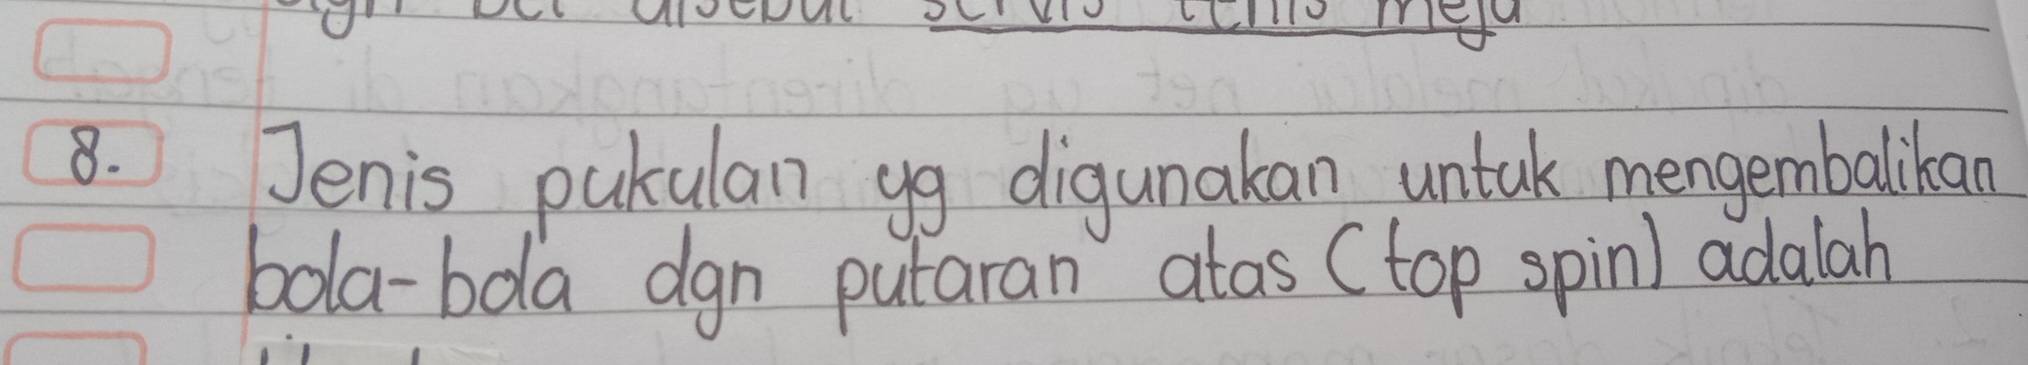 disebut servis tenis meja
8. Jenis pukulan yg digunakan untuk mengembalikan
bola-bola dgn putaran atas (top spin) adalah